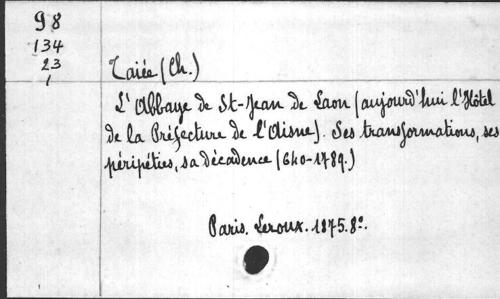 98
134
23
1
Taiée (Ch.)
L'Abbaye de St-Jean de Laon (aujourd'hui l'Hôtel
de la Préfecture de l'Aisne). Ses transformations, ses
péripéties, sa décadence (640-1789.)
Paris. Leroux. 1875. 8º.